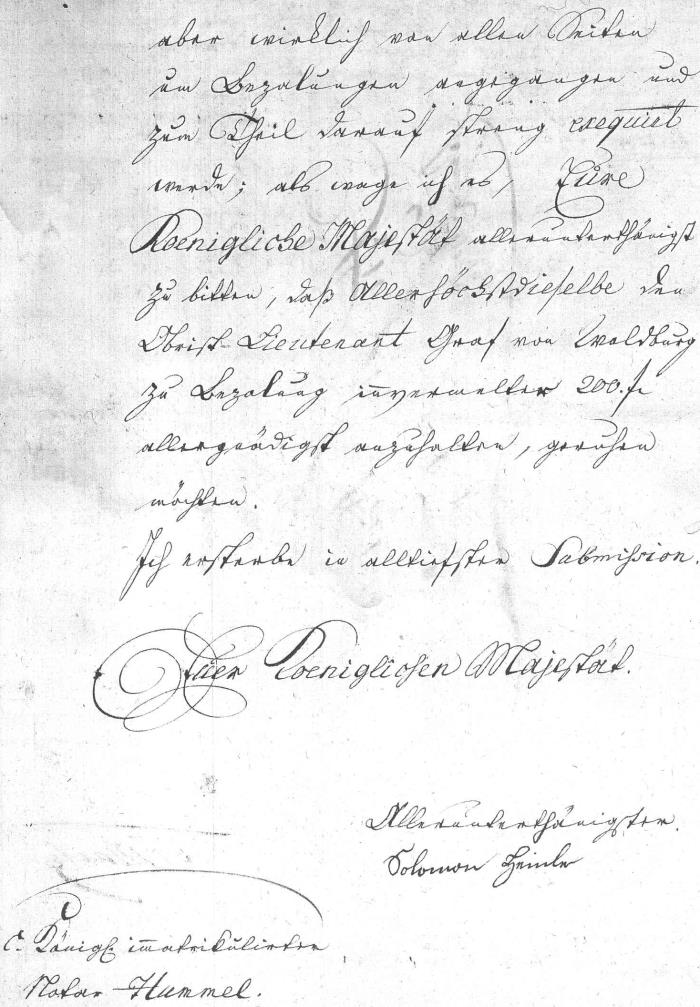 aber wirklich von allen Seiten
um Bezalungen angegangen und
zum Theil darauf streng exequirt
werde; als wage ich es, Eure
Koenigliche Majestät allerunterthänigst
zu bitten, daß Allerhöchstdieselbe den
Obrist-Lieutenant Graf von Waldburg
zu Bezalung innvermelter 200.f.
allergnädigst anzuhalten, geruhen
möchten.
Ich ersterbe in alltiefster Submission.
Euer Koeniglichen Majestät.
Allerunterthänigster.
Solomon
Königl immatrikulirter
Notar Hummel.